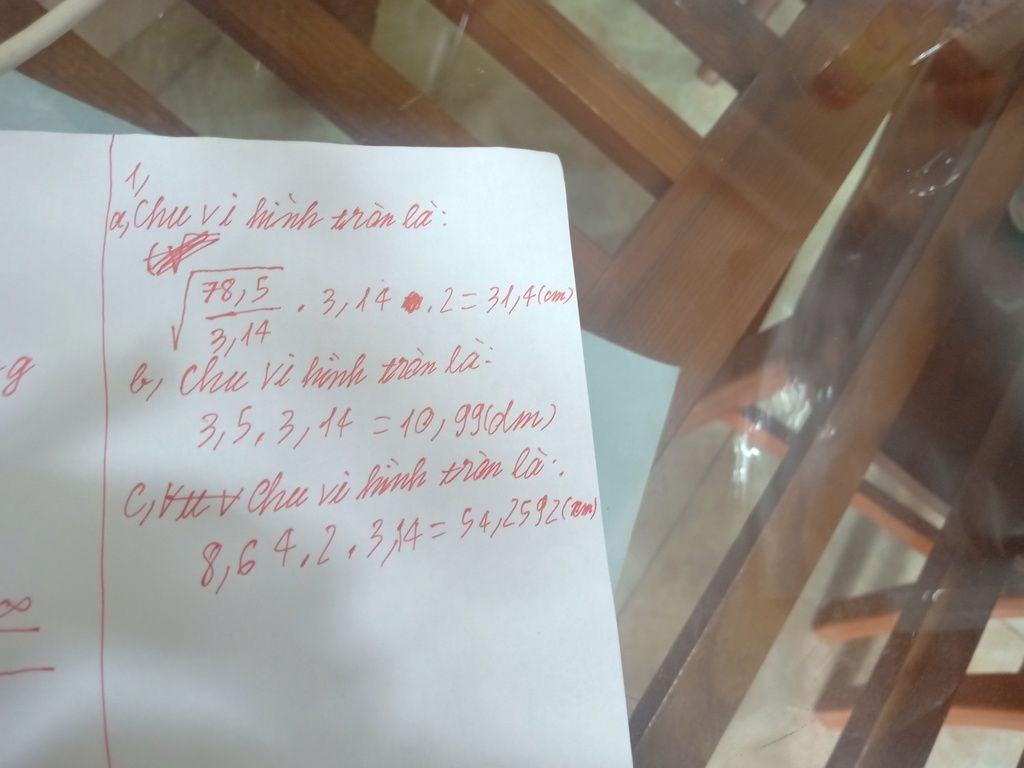 g
∞
1,
a, Chu vi hình tròn là:
√78,5/3,14 . 3,14 . 2 = 31,4(cm)
b, Chu vi hình tròn là:
3,5 . 3,14 = 10,99(dm)
c, Chu vi hình tròn là:
8,64 . 2 . 3,14 = 54,2592(cm)